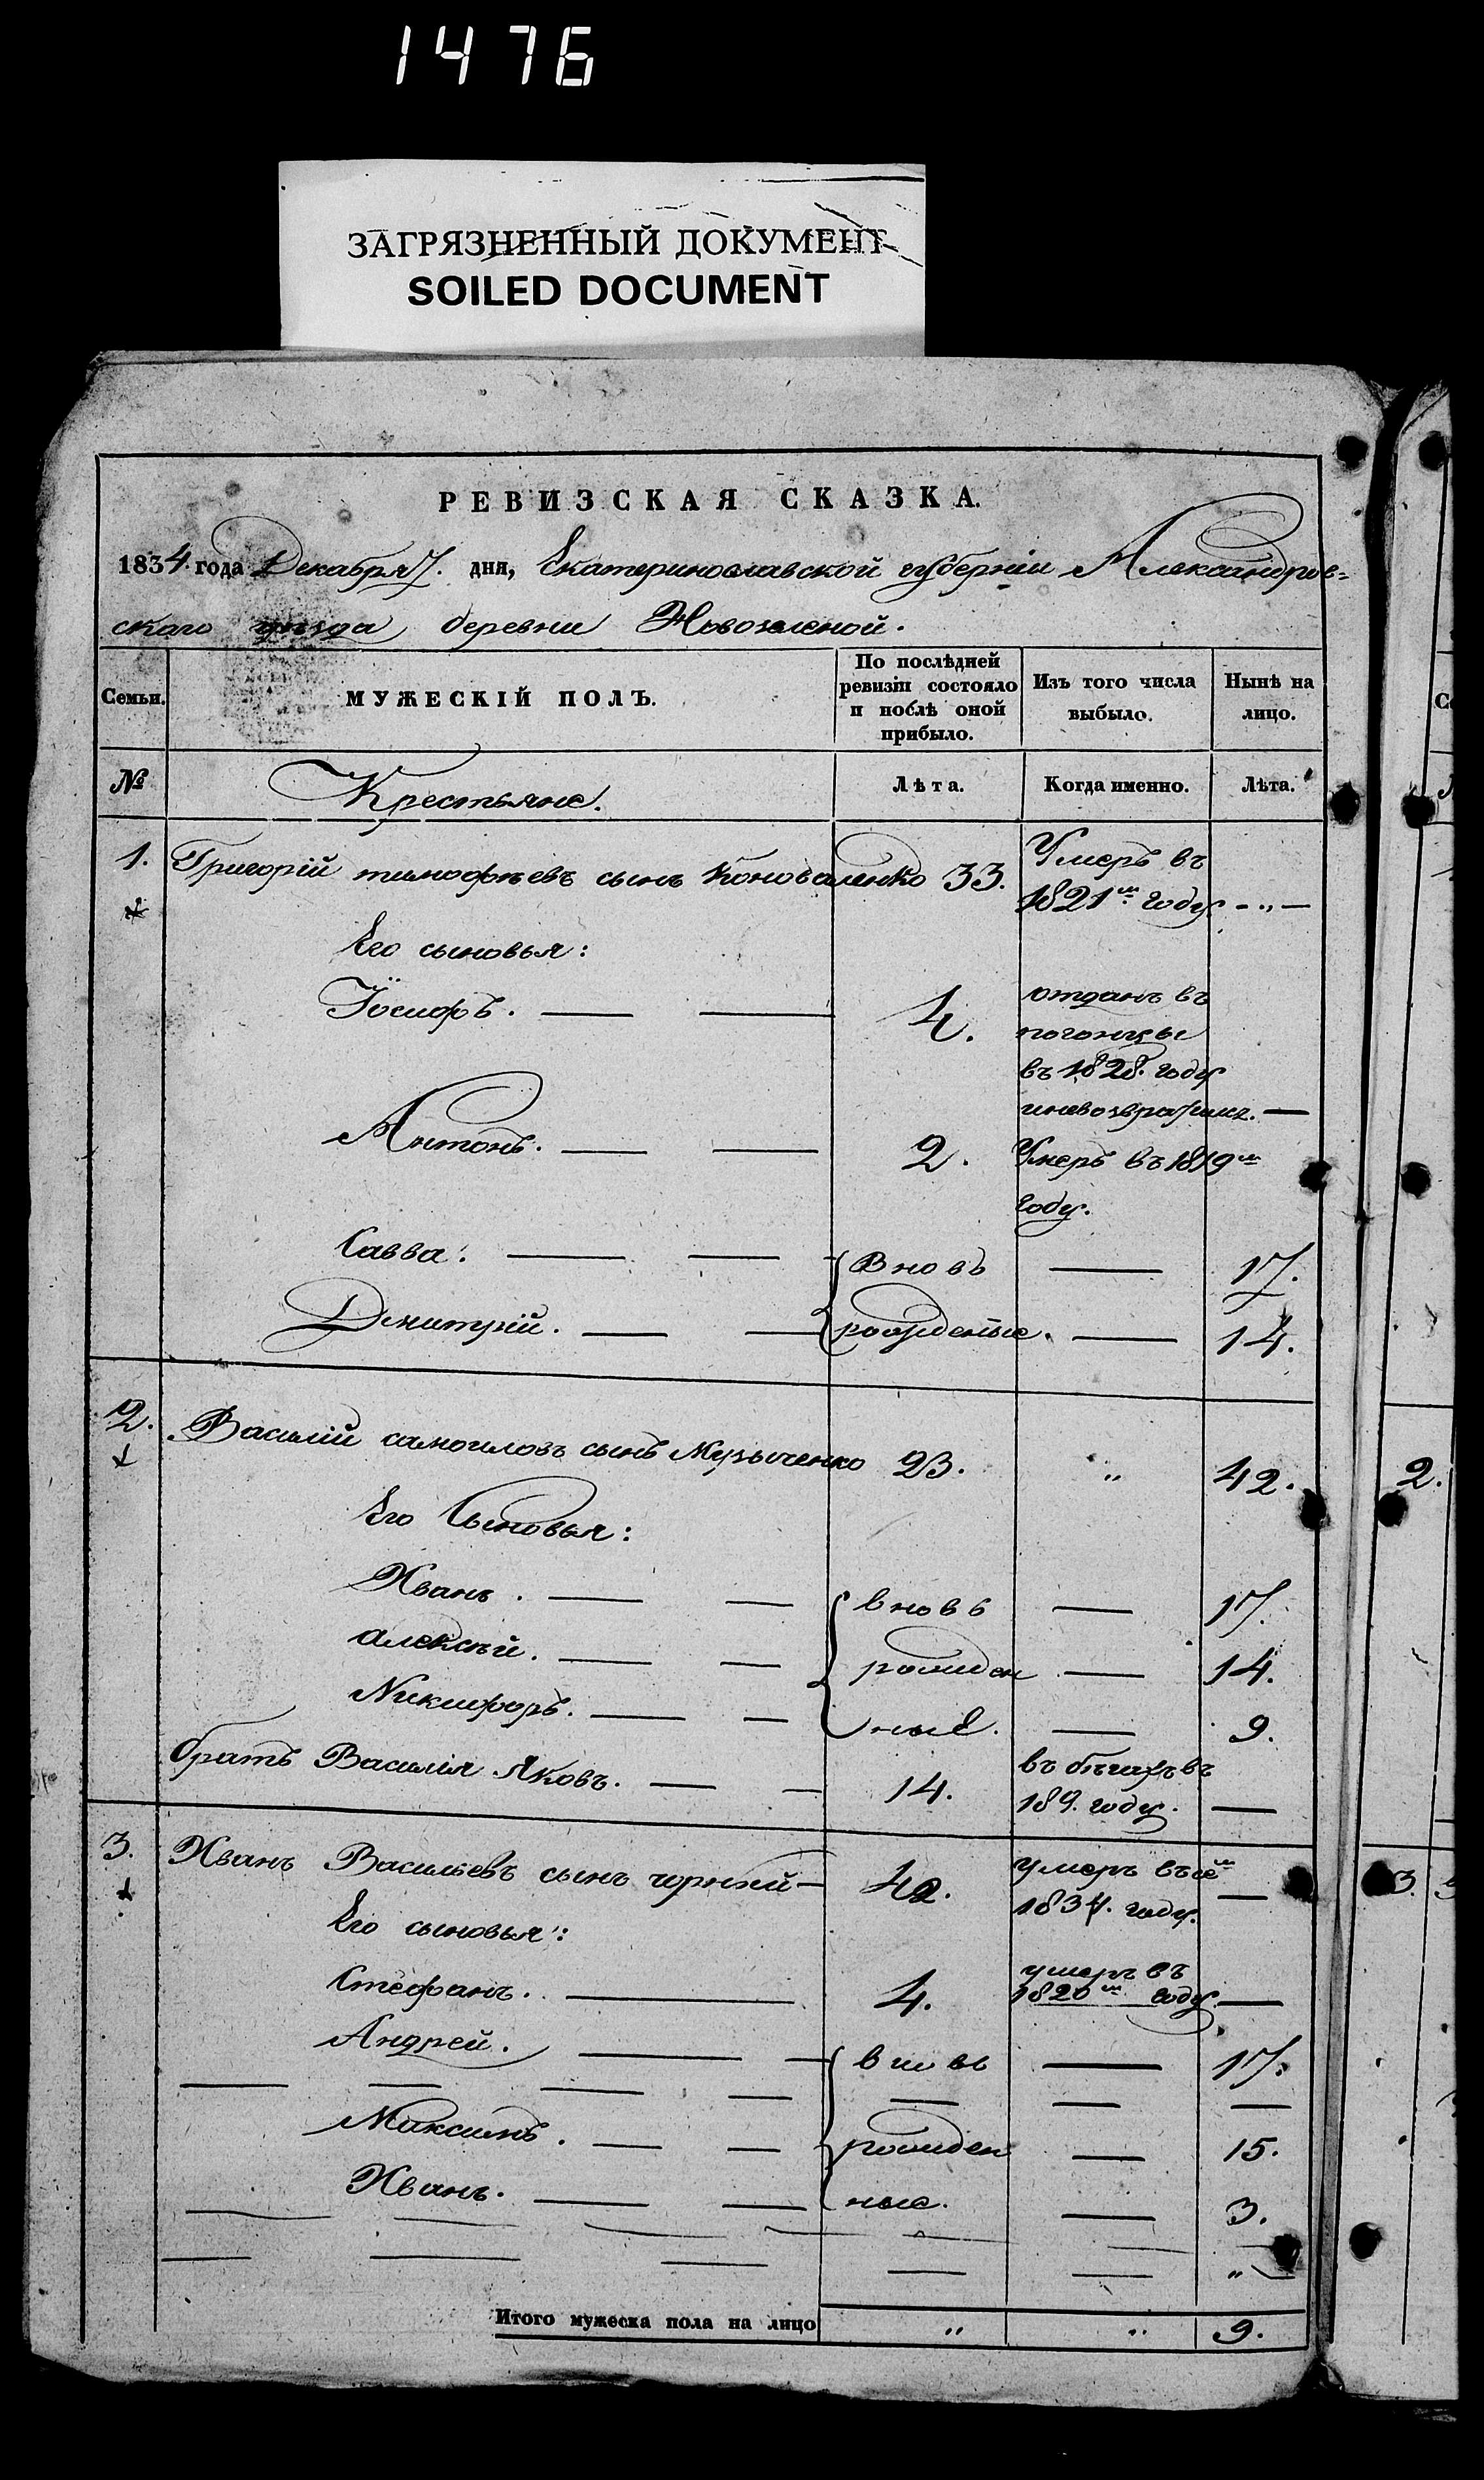 1476
ЗАГРЯЗНЕННЫЙ ДОКУМЕНТ
SOILED DOCUMENT
РЕВИЗСКАЯ СКАЗКА.
1834 года Декабря 7. дня, Екатеринославской губернии Александров=
скаго уѣзда деревни
Семьи. МУЖЕСКІЙ ПОЛЪ. По послѣдней ревизіи состояло и послѣ оной прибыло. Изъ того числа выбыло. Нынѣ на лицо.
№ Крестьяне. Лѣта. Когда именно. Лѣта.
1. Григорій тимофѣевъ сынъ Коноваленко 33. Умеръ въ
1821м году - „ —
Его сыновья:
Іосифъ. — — 4. отданъ въ
погонцы
въ 1828. году
—
Антонъ. — — 2. Умеръ въ 1819м
году.
Савва. — — Вновь — 17.
Димитрій. — — рожденые. — 14.
2. Василій самоиловъ сынъ Музыченко 23. „ 42.
Его Сыновья:
Иванъ. — — вновь — 17.
алексѣй. — — рожден — 14.
Никифоръ. — — ные. — 9.
братъ Василія Яковъ. — — 14. въ бѣгахъ въ
189. году. —
3. Иванъ Васильевъ сынъ чорный — 42. умеръ въ
1834. году. —
Его сыновья:
Стефанъ. — 4. умеръ въ
1820м году —
Андрей. — — вновь — 17.
Максимъ. — — рожден — 15.
Иванъ. — — ные. — 3.
Итого мужеска пола на лицо „ „ 9.
2.
3.